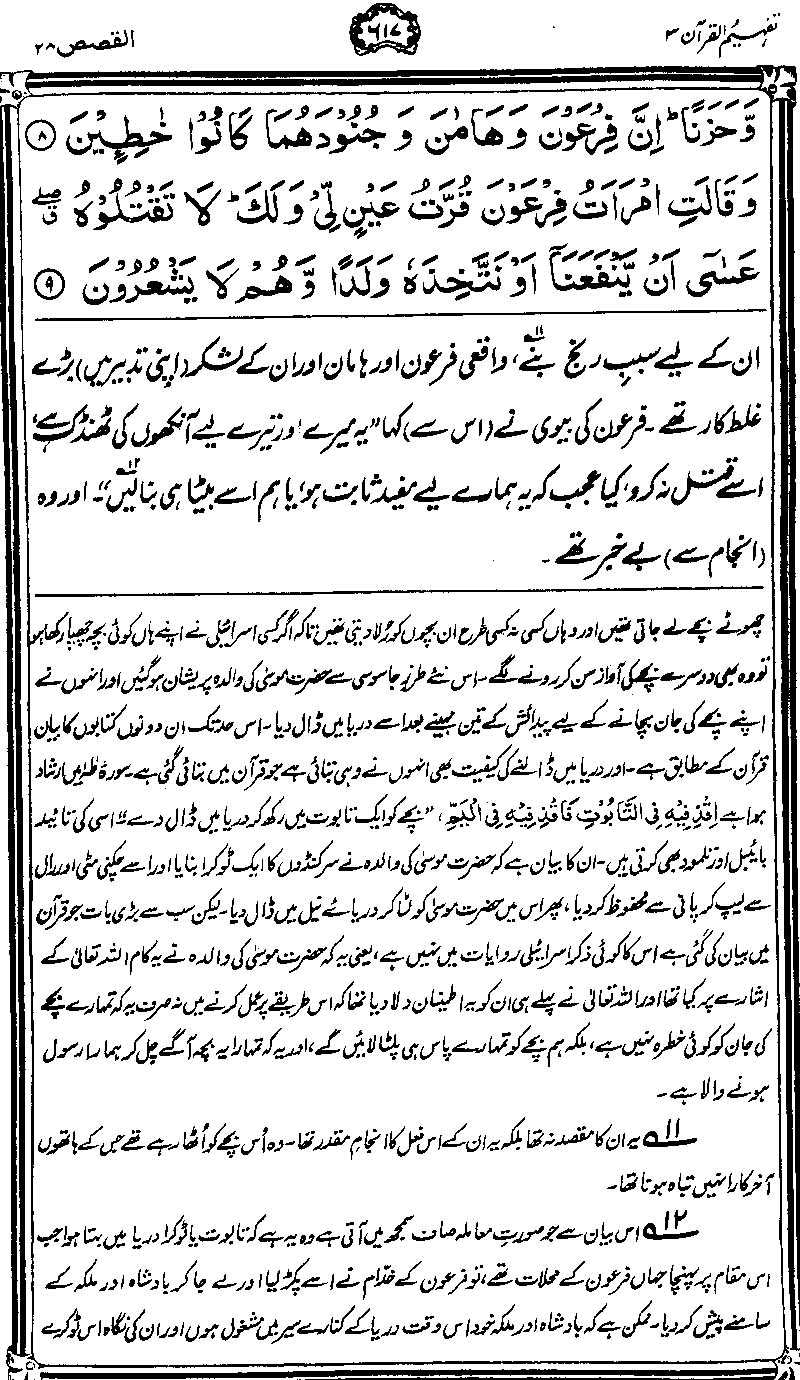 تفہیم القرآن ۳
۶۱۷
القصص ۲۸
وَّحَزَنًا ؕ اِنَّ فِرْعَوْنَ وَهَامٰنَ وَجُنُوْدَهُمَا كَانُوْا خٰطِـِٕيْنَ ۸
وَقَالَتِ امْرَاَتُ فِرْعَوْنَ قُرَّتُ عَيْنٍ لِّيْ وَلَكَ ؕ لَا تَقْتُلُوْهُ ۖق
عَسٰٓى اَنْ يَّنْفَعَنَآ اَوْ نَتَّخِذَهٗ وَلَدًا وَّهُمْ لَا يَشْعُرُوْنَ ۹
ان کے لیے سببِ رنج بنے،۱۱ واقعی فرعون اور ہامان اور ان کے لشکر (اپنی تدبیر میں) بڑے
غلط کار تھے۔ فرعون کی بیوی نے (اس سے) کہا ”یہ میرے اور تیرے لیے آنکھوں کی ٹھنڈک ہے،
اسے قتل نہ کرو، کیا عجب کہ یہ ہمارے لیے مفید ثابت ہو، یا ہم اسے بیٹا ہی بنا لیں“۱۲۔ اور وہ
(انجام سے) بے خبر تھے۔
چھوٹے بچے لے جاتی تھیں اور وہاں کسی نہ کسی طرح ان بچوں کو رُلا دیتی تھیں تاکہ اگر کسی اسرائیلی نے اپنے ہاں کوئی بچہ چھپا رکھا ہو
تو وہ بھی دوسرے بچے کی آواز سن کر رونے لگے۔ اس نئے طرزِ جاسوسی سے حضرت موسیٰ کی والدہ پریشان ہو گئیں اور انہوں نے
اپنے بچے کی جان بچانے کے لیے پیدائش کے تین مہینے بعد اسے دریا میں ڈال دیا۔ اس حد تک ان دونوں کتابوں کا بیان
قرآن کے مطابق ہے۔ اور دریا میں ڈالنے کی کیفیت بھی انہوں نے وہی بتائی ہے جو قرآن میں بتائی گئی ہے۔ سورۂ طٰہٰ میں ارشاد
ہوا ہے اِقْذِفِيْهِ فِى التَّابُوْتِ فَاقْذِفِيْهِ فِى الْيَمِّ، ”بچے کو ایک تابوت میں رکھ کر دریا میں ڈال دے“ اسی کی تائید
بائیبل اور تلمود بھی کرتی ہیں۔ ان کا بیان ہے کہ حضرت موسیٰ کی والدہ نے سرکنڈوں کا ایک ٹوکرا بنایا اور اسے چکنی مٹی اور رال
سے لیپ کر پانی سے محفوظ کر دیا، پھر اس میں حضرت موسیٰ کو لٹا کر دریائے نیل میں ڈال دیا۔ لیکن سب سے بڑی بات جو قرآن
میں بیان کی گئی ہے اس کا کوئی ذکر اسرائیلی روایات میں نہیں ہے، یعنی یہ کہ حضرت موسیٰ کی والدہ نے یہ کام اللہ تعالیٰ کے
اشارے پر کیا تھا اور اللہ تعالیٰ نے پہلے ہی ان کو یہ اطمینان دلا دیا تھا کہ اس طریقے پر عمل کرنے میں نہ صرف یہ کہ تمہارے بچے
کی جان کو کوئی خطرہ نہیں ہے، بلکہ ہم بچے کو تمہارے پاس ہی پلٹا لائیں گے، اور یہ کہ تمہارا یہ بچہ آگے چل کر ہمارا رسول
ہونے والا ہے۔
۱۱؎ یہ ان کا مقصد نہ تھا بلکہ یہ ان کے اس فعل کا انجامِ مقدر تھا۔ وہ اُس بچے کو اُٹھا رہے تھے جس کے ہاتھوں
آخر کار انہیں تباہ ہونا تھا۔
۱۲؎ اس بیان سے جو صورتِ معاملہ صاف سمجھ میں آتی ہے وہ یہ ہے کہ تابوت یا ٹوکرا دریا میں بہتا ہوا جب
اس مقام پر پہنچا جہاں فرعون کے محلات تھے، تو فرعون کے خدّام نے اسے پکڑ لیا اور لے جا کر بادشاہ اور ملکہ کے
سامنے پیش کر دیا۔ ممکن ہے کہ بادشاہ اور ملکہ خود اس وقت دریا کے کنارے سیر میں مشغول ہوں اور ان کی نگاہ اس ٹوکرے